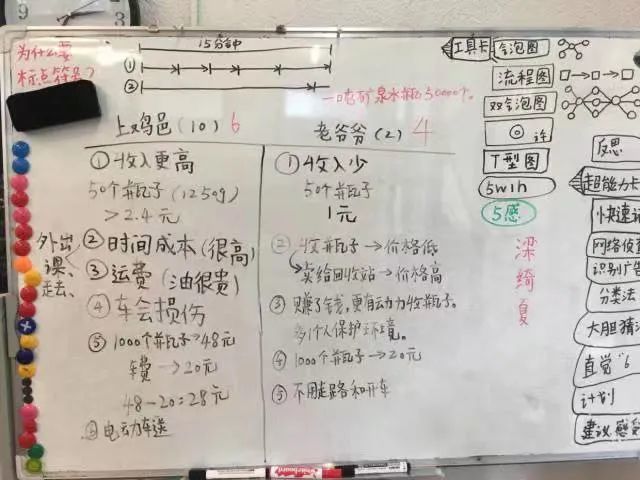 为什么要
标点符号?
15分钟
①
②
一吨矿泉水瓶≈50000个。
上鸡邑(10) 6
老爷爷(2) 4
①收入更高
50个瓶子(1250g)
>2.4元
外出
课、
走、
②时间成本(很高)
③运费(油很贵)
④车会损伤
⑤1000个瓶子→48元
车费→20元
48-20=28元
⑥电动车送
①收入少
50个瓶子
1元
②收瓶子→价格低
卖给回收站→价格高
③赚了钱,更有动力收瓶子。
多个人保护环境。
④1000个瓶子→20元
⑤不用走路和开车
工具卡
气泡图
流程图
双气泡图
T型图
5w1h
5感
梁
绮
夏
反思
超能力卡
快速记
网络侦查
识别广告
分类法
大胆猜测
直觉"6
计划
建议感受